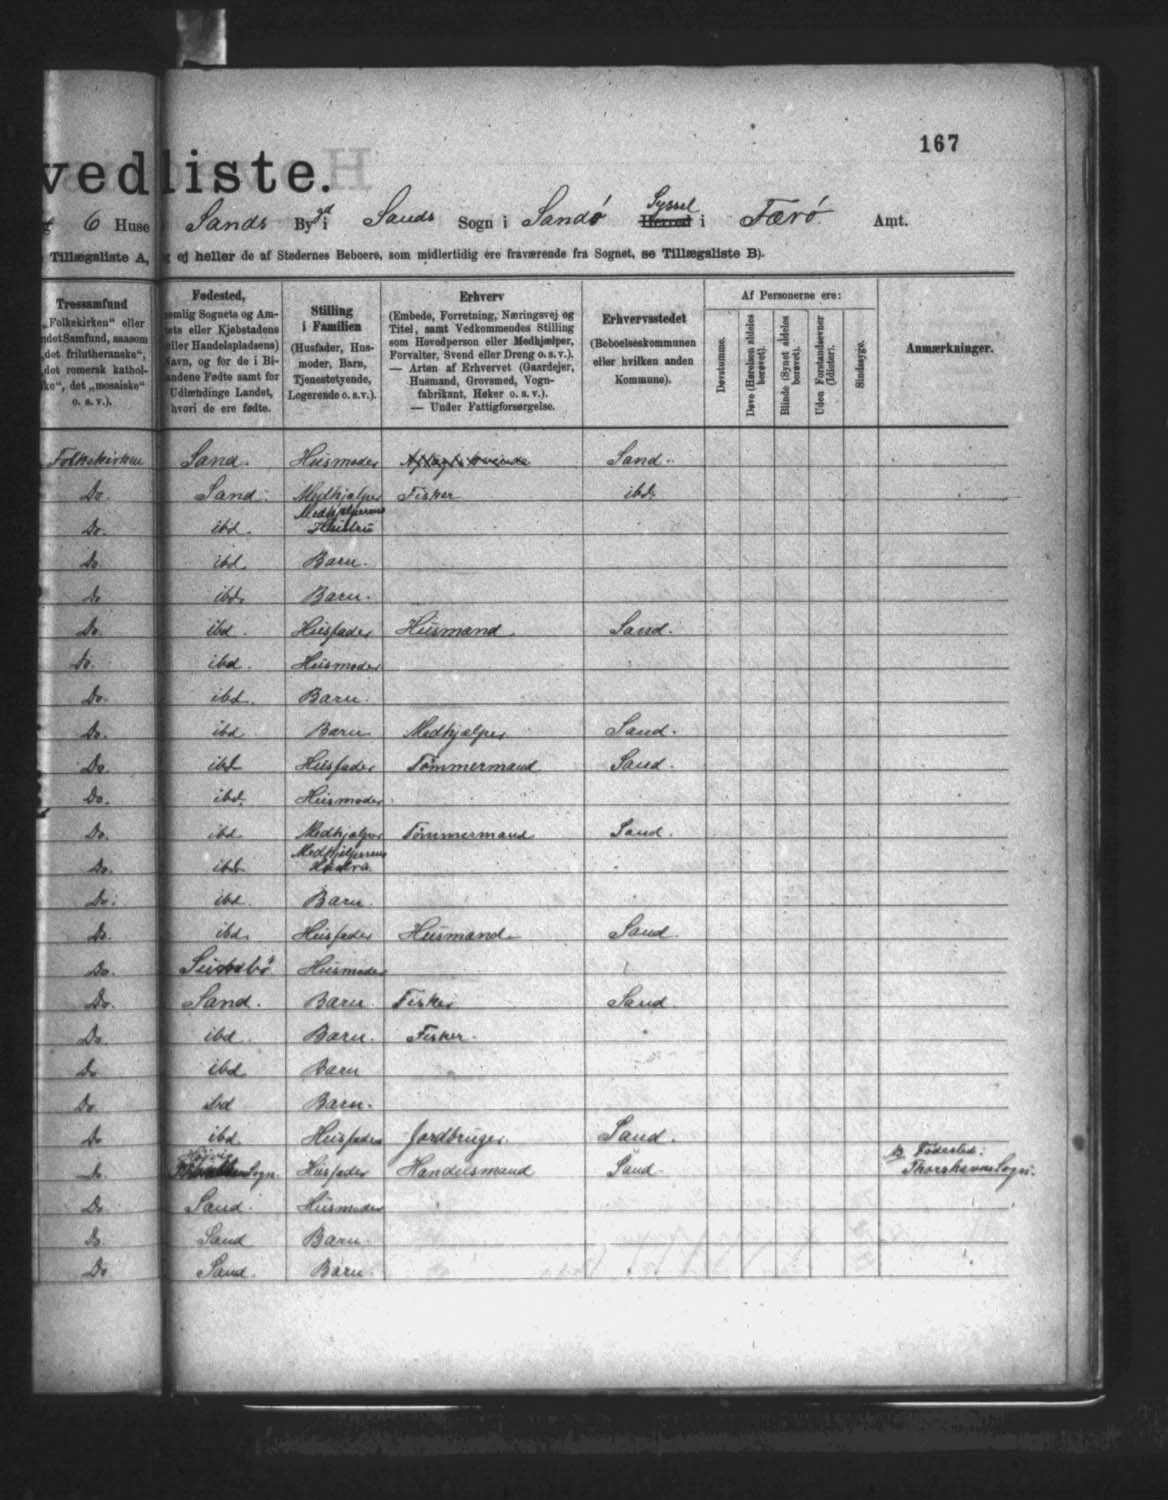 167
vedliste.
6 Huse Sands Bygd i Sands Sogn i Sandø Syssel Herred i Færø Amt.
Tillægsliste A, ej heller de af Stedernes Beboere, som midlertidig ere fraværende fra Sognet, se Tillægsliste B).
Trossamfund „Folkekirken“ eller
ndet Samfund, saasom
„det frilutheranske“,
det romersk kathol-
ke“, det „mosaiske“
o. s. v.).
Fødested,
emlig Sognets og Am-
ets eller Kjøbstadens
eller Handelspladsens)
Navn, og for de i Bi-
landene Fødte samt for
Udlændinge Landet,
hvori de ere fødte.
Stilling
i Familien
(Husfader, Hus-
moder, Barn,
Tjenestetyende,
Logerende o. s. v.).
Erhverv
(Embede, Forretning, Næringsvej og
Titel, samt Vedkommendes Stilling
som Hovedperson eller Medhjælper,
Forvalter, Svend eller Dreng o. s. v.).
— Arten af Erhvervet (Gaardejer,
Husmand, Grovsmed, Vogn-
fabrikant, Høker o. s. v.).
— Under Fattigforsørgelse.
Erhvervsstedet
(Beboelseskommunen
eller hvilken anden
Kommune).
Af Personerne ere:
Døvstumme.
Døve (Hørelsen aldeles berøvet).
Blinde (Synet aldeles berøvet).
Uden Forstandsevner (Idioter).
Sindssyge.
Anmærkninger.
Folkekirken Sand. Husmoder Sand.
Do. Sand. Medhjælper Fisker ibd.
Do. ibd. Medhjælperens Hustru
Do. ibd. Barn.
Do ibd. Barn.
Do. ibd. Husfader Husmand. Sand.
Do. ibd. Husmoder
Do. ibd. Barn.
Do. ibd. Barn Medhjælper. Sand.
Do. ibd Husfader Tømmermand Sand.
Do. ibd. Husmoder.
Do. ibd. Medhjælper Tømmermand Sand.
Do. ibd. Medhjælperens Hustru
Do. ibd. Barn.
Do. ibd. Husfader Husmand. Sand.
Do. Husmoder
Do. Sand. Barn. Fisker Sand.
Do ibd. Barn. Fisker.
Do ibd. Barn
Do ibd Barn.
Do ibd. Husfader Jordbruger. Sand.
Do Sogn. Husfader Handelsmand Sand. Fødested: Thorshavns Sogn.
Do Sand. Husmoder
Do Sand Barn.
Do Sand. Barn.